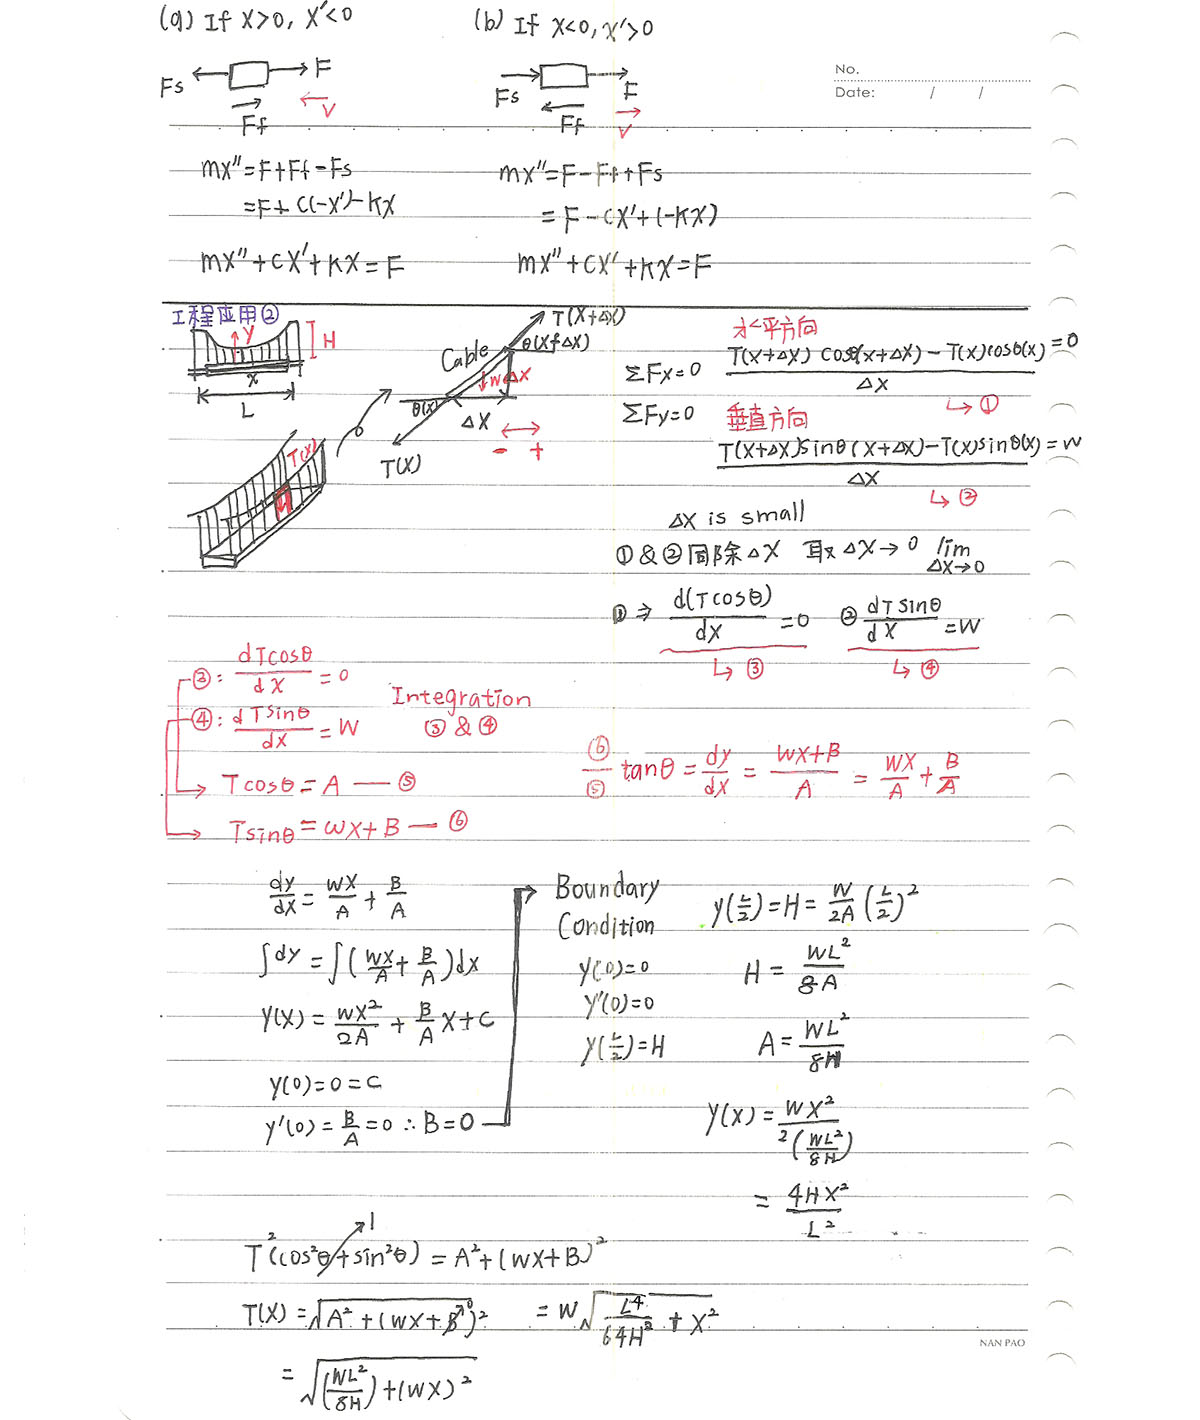 (a) If X>0, X'<0
(b) If X<0, X'>0
No.
Date: / /
Fs F Ff V
Fs F Ff V
mX''=F+Ff-Fs
=F+C(-X')-KX
mX''+CX'+KX=F
mX''=F-Ff+Fs
=F-CX'+(-KX)
mX''+CX'+KX=F
工程应用②
y H
x
L
T(X)
T(X+ΔX)
θ(X+ΔX)
Cable
WΔX
θ(X)
ΔX
T(X)
- +
水平方向
ΣFx=0 T(X+ΔX) cosθ(X+ΔX)-T(X)cosθ(X)/ΔX=0
↳①
ΣFy=0 垂直方向
T(X+ΔX)sinθ(X+ΔX)-T(X)sinθ(X)/ΔX=W
↳②
ΔX is small
①&②同除ΔX 取ΔX→0 lim ΔX→0
①⇒ d(Tcosθ)/dX=0 ② dTsinθ/dX=W
↳③ ↳④
③: dTcosθ/dX=0
④: dTsinθ/dX=W
Integration
③&④
Tcosθ=A—⑤
Tsinθ=WX+B—⑥
⑥/⑤ tanθ=dy/dX=WX+B/A=WX/A+B/A
dy/dX=WX/A+B/A
∫dy=∫(WX/A+B/A)dX
y(X)=WX²/2A+B/A X+C
y(0)=0=C
y'(0)=B/A=0∴B=0
Boundary
Condition
y(0)=0
y'(0)=0
y(L/2)=H
y(L/2)=H=W/2A(L/2)²
H=WL²/8A
A=WL²/8H
y(X)=WX²/2(WL²/8H)
=4HX²/L²
T²(cos²θ+sin²θ)=A²+(WX+B)²
1
T(X)=√A²+(WX+B)²
0
=√(WL²/8H)+(WX)²
=W√L⁴/64H²+X²
NAN PAO